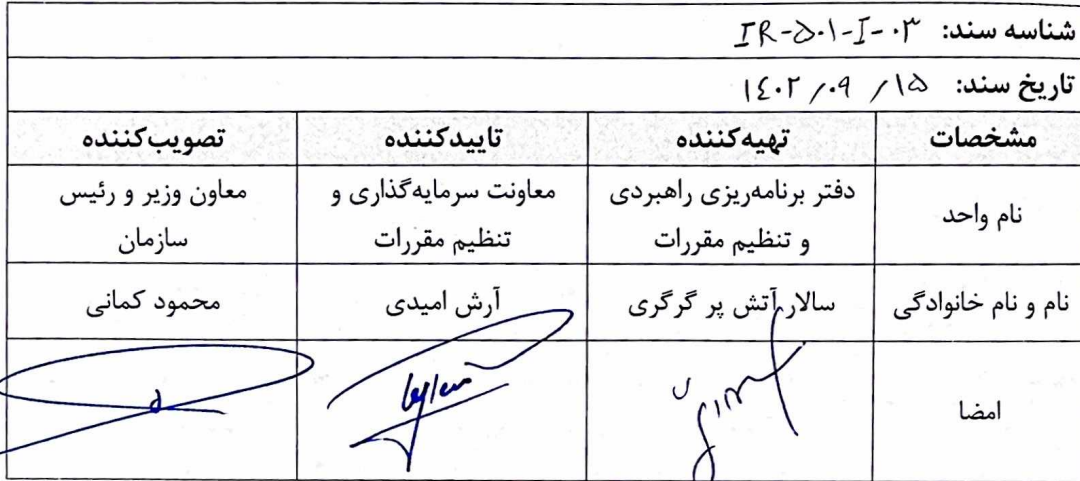 شناسه سند: IR-۵۰۱-I-۰۳
تاریخ سند: ۱۴۰۲/۰۹/۱۵
مشخصات تهیه‌کننده تاییدکننده تصویب‌کننده
نام واحد دفتر برنامه‌ریزی راهبردی و تنظیم مقررات معاونت سرمایه‌گذاری و تنظیم مقررات معاون وزیر و رئیس سازمان
نام و نام خانوادگی سالار آتش پر گرگری آرش امیدی محمود کمانی
امضا